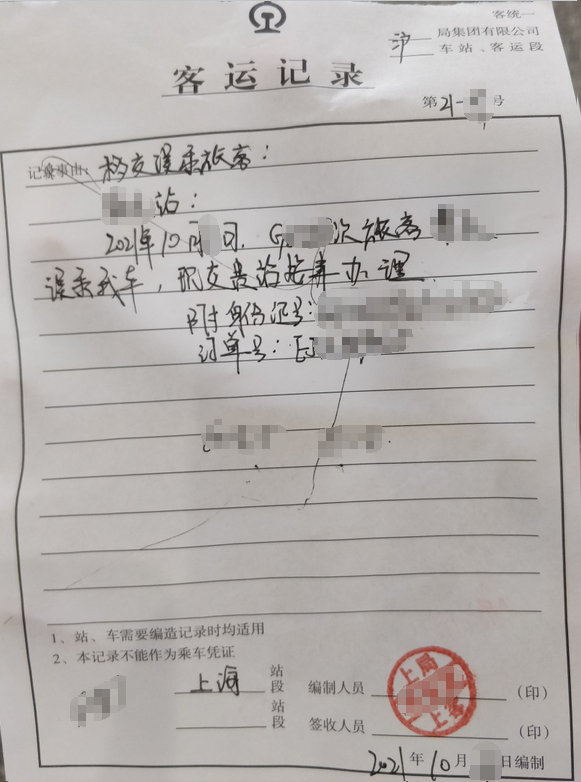 客统一
沪 局集团有限公司
车站、客运段
客运记录
第21- 号
记录事由：移交误乘旅客：
站：
2021年10月 日，G 次旅客
误乘我车，现交贵站按章办理
附身份证号：
订单号：E
1、站、车需要编造记录时均适用
2、本记录不能作为乘车凭证
上海 站段 编制人员 （印）
站段 签收人员 （印）
上局
上客
2021年10月 日编制